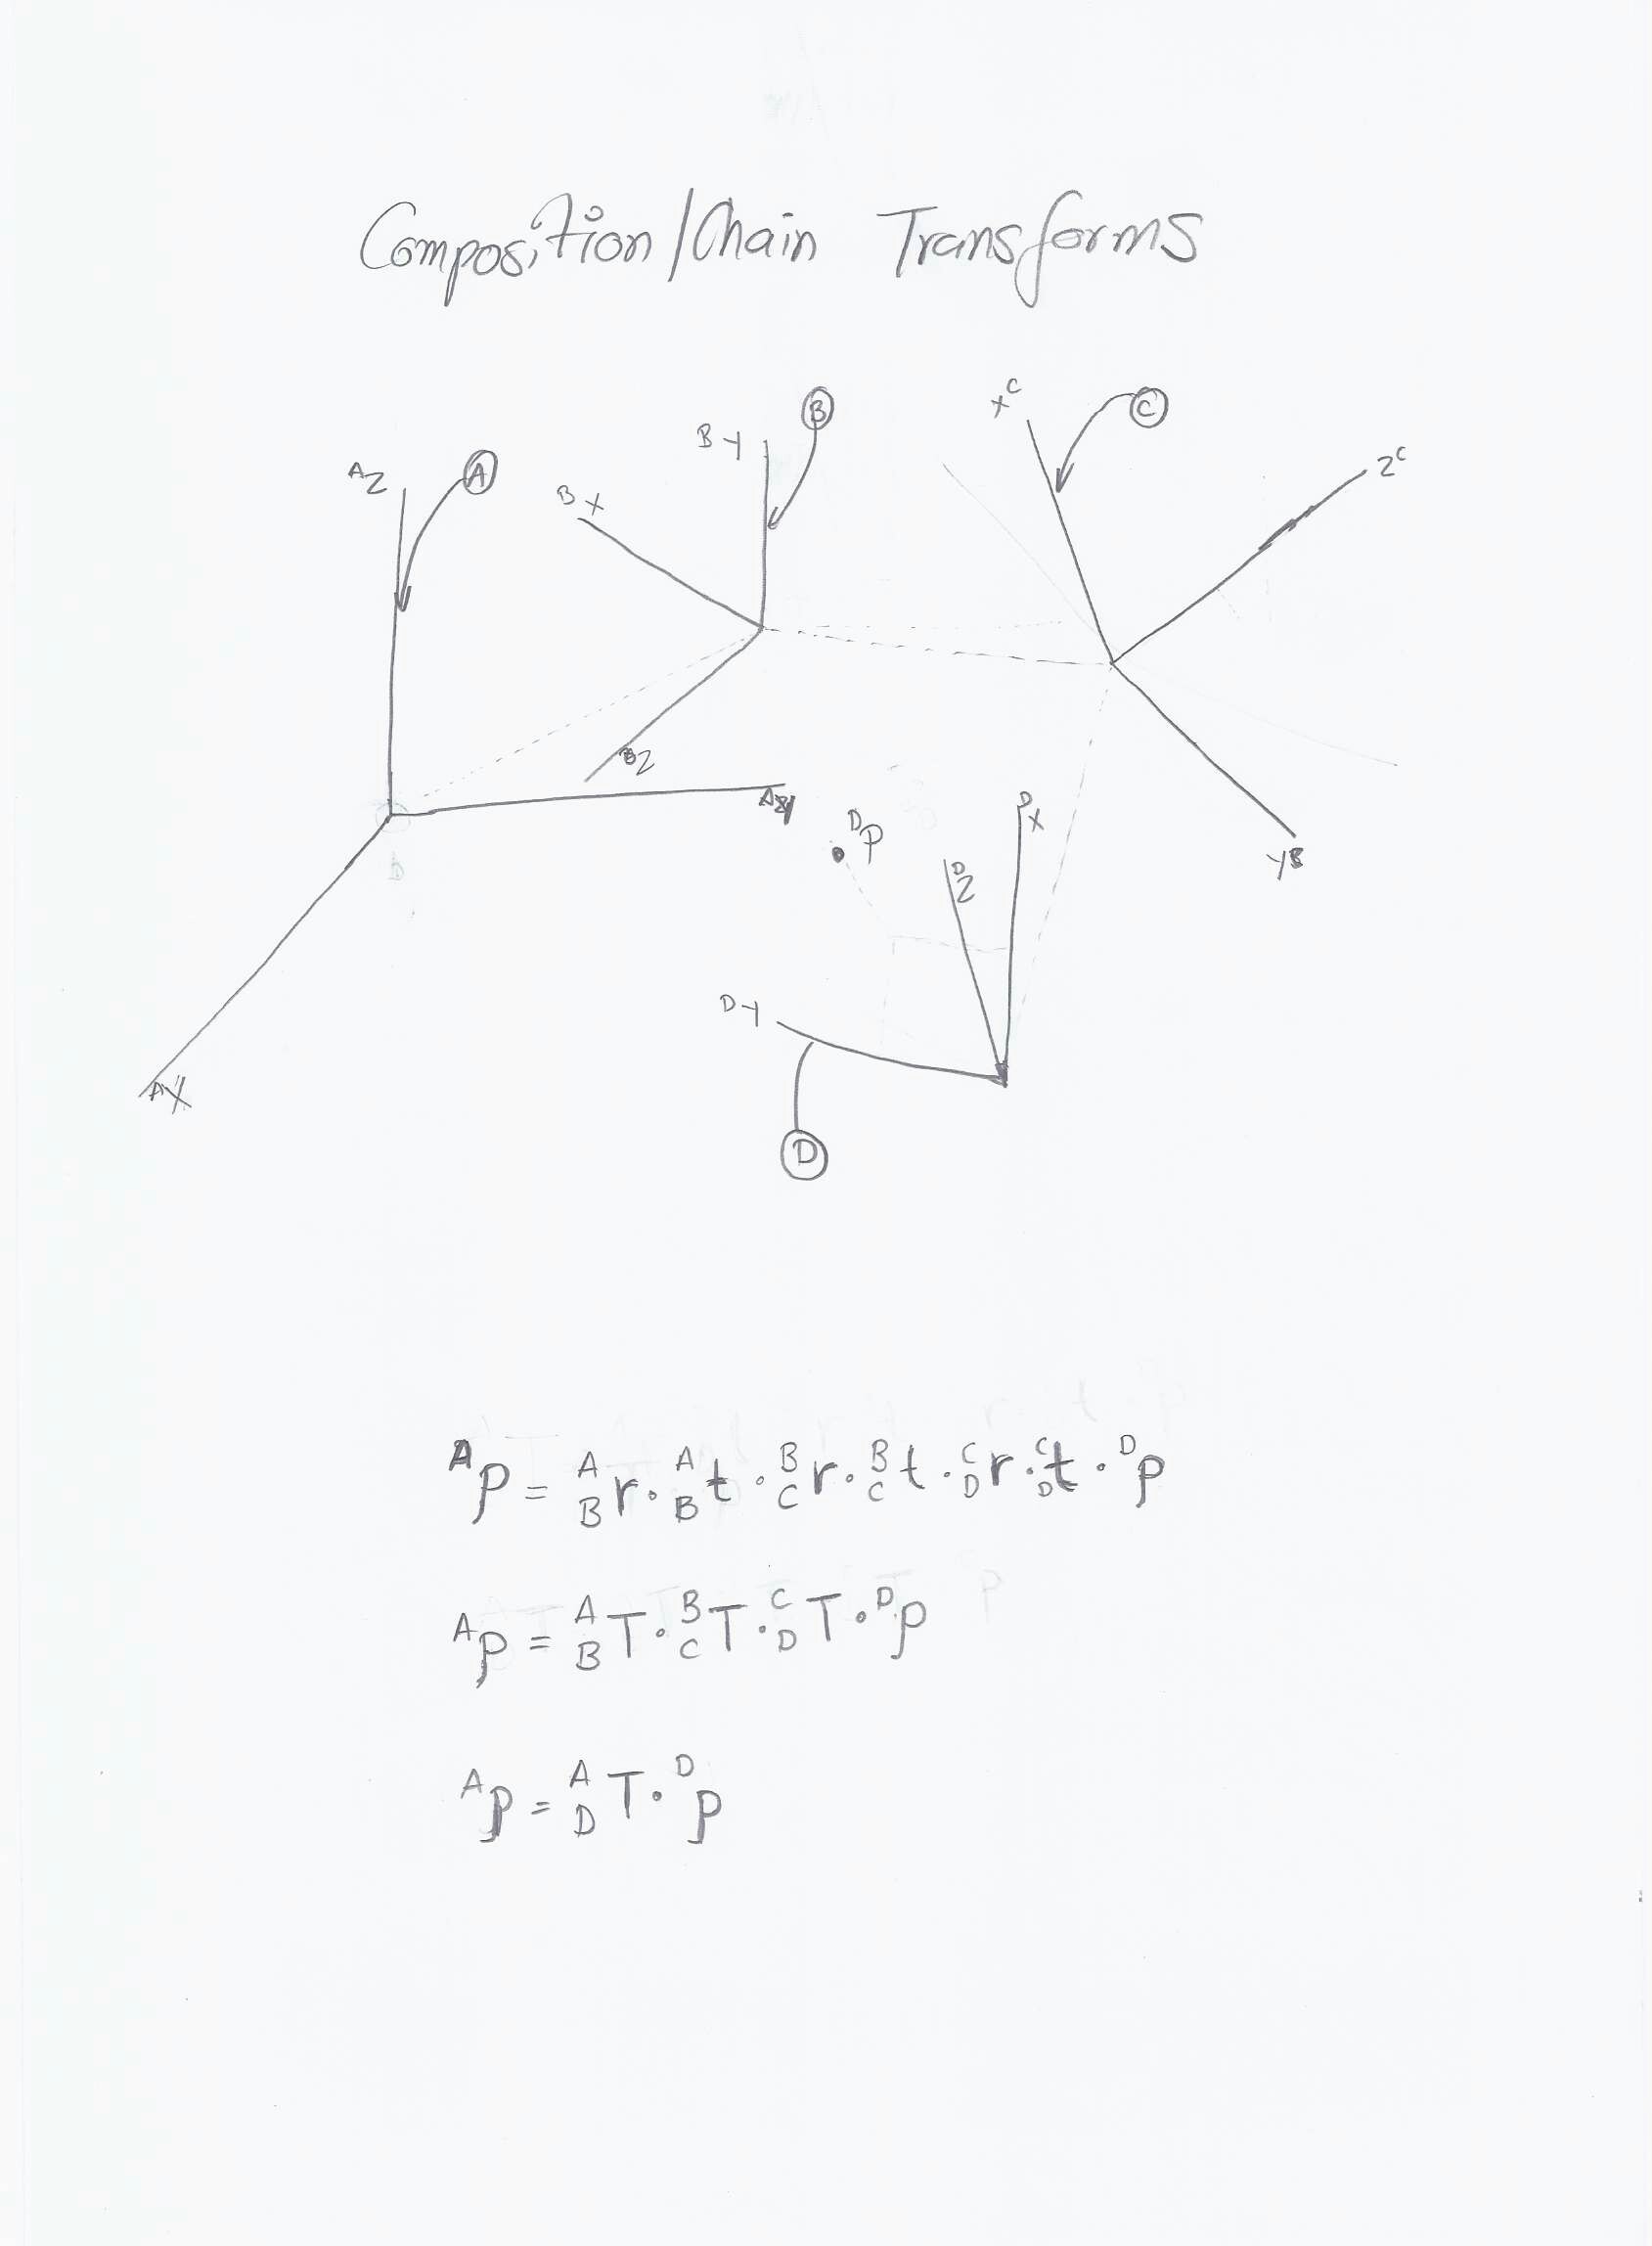 Composition/Chain Transforms
B
C
xᶜ
A
ᴮY
Zᶜ
ᴬZ
ᴮX
ᴮZ
ᴬY
ᴰX
ᴰP
ᴰZ
Yᴮ
ᴰY
ᴬX
D
ᴬp = ᴬ_B r · ᴬ_B t · ᴮ_C r · ᴮ_C t · ᶜ_D r · ᶜ_D t · ᴰp
ᴬp = ᴬ_B T · ᴮ_C T · ᶜ_D T · ᴰp
ᴬp = ᴬ_D T · ᴰp